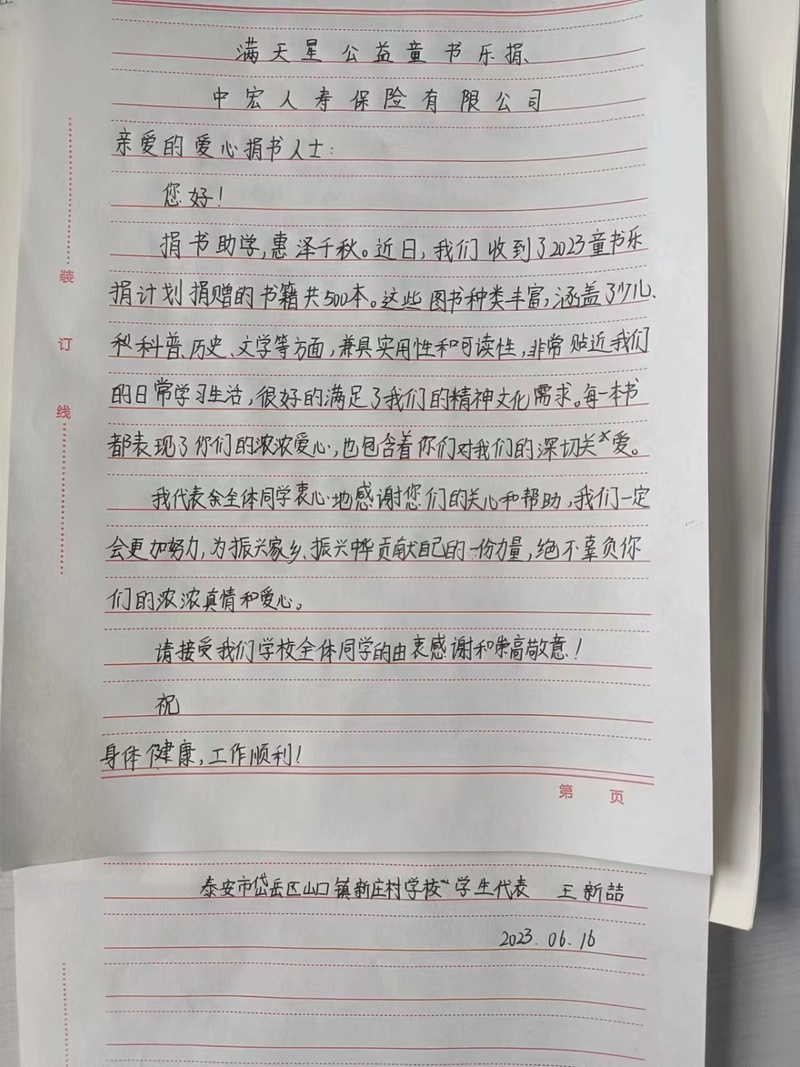 满天星公益童书乐捐、
中宏人寿保险有限公司
亲爱的爱心捐书人士:
您好!
捐书助学,惠泽千秋。近日,我们收到了2023童书乐
捐计划捐赠的书籍共500本。这些图书种类丰富,涵盖了少儿、
科普、历史、文学等方面,兼具实用性和可读性,非常贴近我们
的日常学习生活,很好的满足了我们的精神文化需求。每一本书
都表现了你们的浓浓爱心,也包含着你们对我们的深切关爱。
我代表全体同学衷心地感谢您们的关心和帮助,我们一定
会更加努力,为振兴家乡、振兴中华贡献自己的一份力量,绝不辜负你
们的浓浓真情和爱心。
请接受我们学校全体同学的由衷感谢和崇高敬意!
祝
身体健康,工作顺利!
装
订
线
第 页
泰安市岱岳区山口镇新庄村学校 学生代表 王新喆
2023.06.16